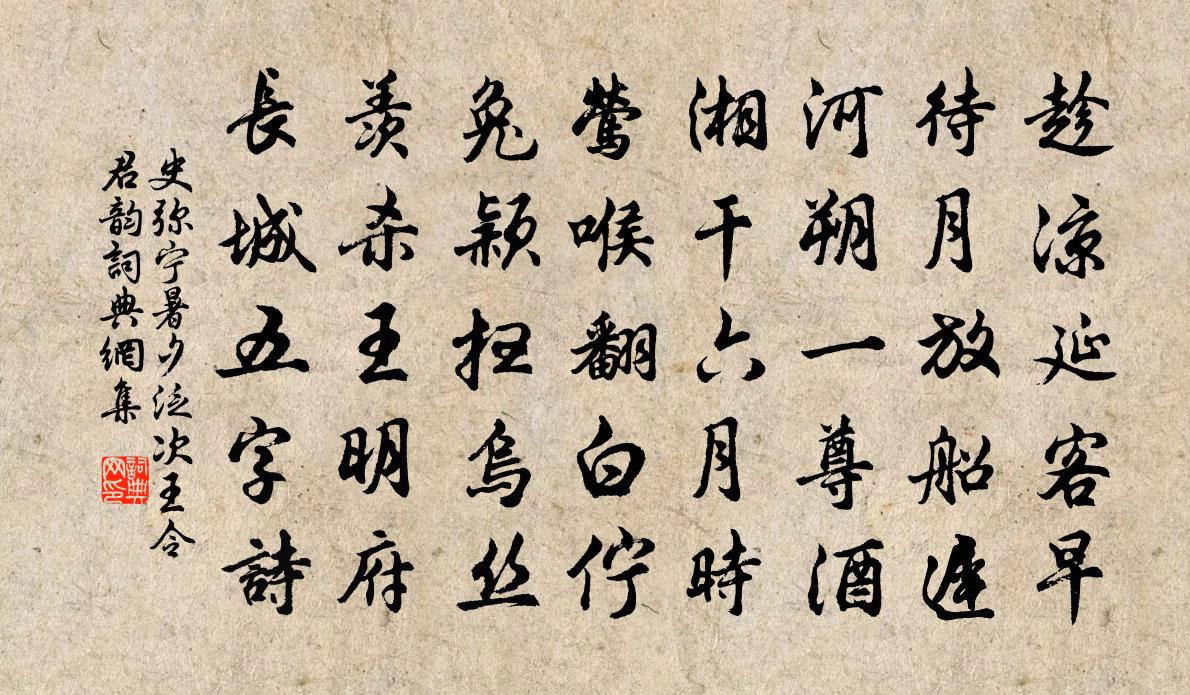 趁涼延客早
待月放船遲
河朔一尊酒
湘干六月時
鶯喉翻白佇
兔穎扫烏丝
羨杀王明府
長城五字詩
史弥宁暑夕泛次王令
君韵詞典網集
詞典网印